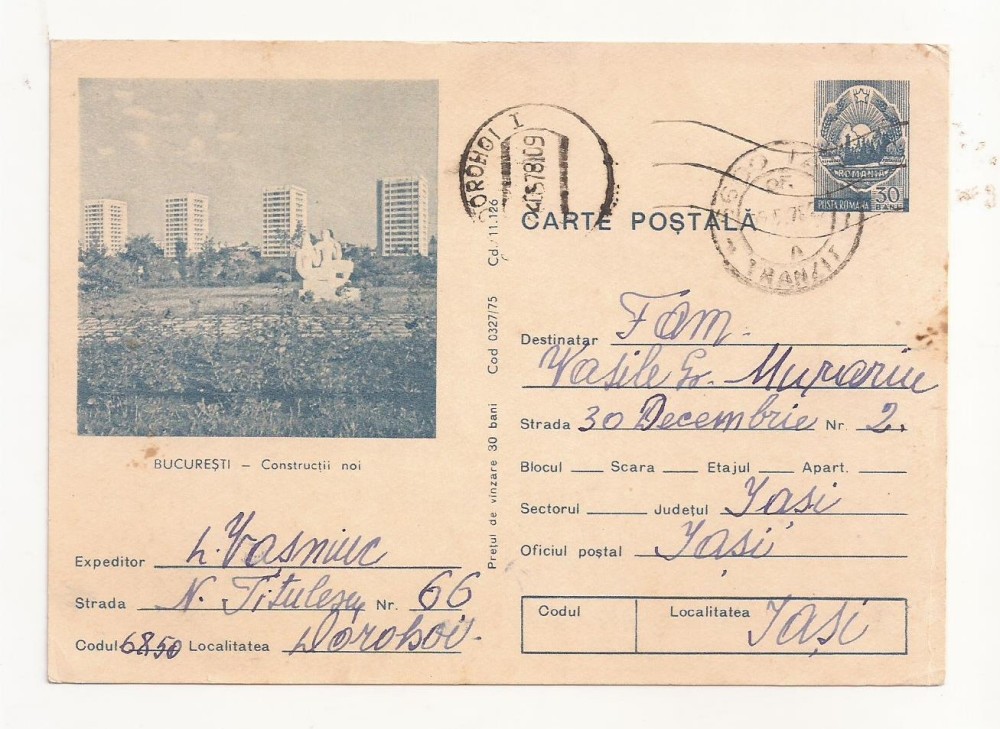 BUCUREȘTI – Construcții noi
Expeditor L. Vasniuc
Strada N. Titulescu Nr. 66
Codul 6850 Localitatea Dorohoi
Prețul de vînzare 30 bani Cod 0327/75 Cd. 11.126
DOROHOI 1
578 09
ROMANIA
POSTA ROMANA 30 BANI
CARTE POȘTALĂ
TRANZIT
Destinatar Fam.
Vasile Gr. Murariu
Strada 30 Decembrie Nr. 2.
Blocul Scara Etajul Apart.
Sectorul Județul Iasi
Oficiul poștal Iași
Codul Localitatea Iași